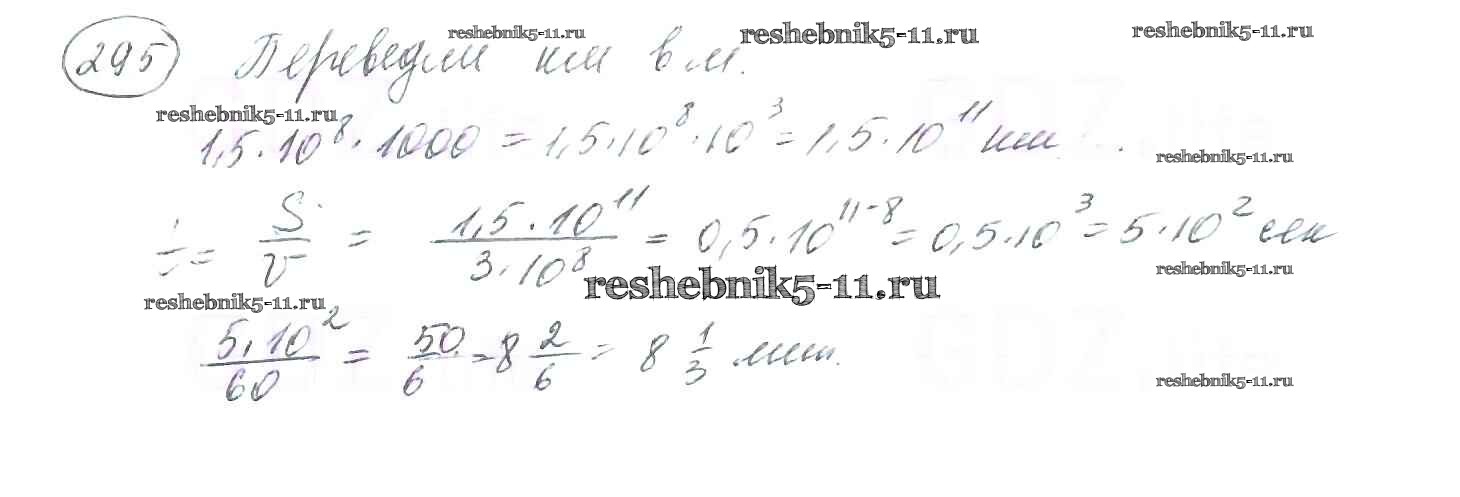 reshebnik5-11.ru reshebnik5-11.ru reshebnik5-11.ru
295 Переведем км в м.
reshebnik5-11.ru
1,5·10⁸·1000 = 1,5·10⁸·10³ = 1,5·10¹¹ км.
reshebnik5-11.ru
t = S/v = 1,5·10¹¹/3·10⁸ = 0,5·10¹¹⁻⁸ = 0,5·10³ = 5·10² сек
reshebnik5-11.ru reshebnik5-11.ru
reshebnik5-11.ru
5·10²/60 = 50/6 = 8 2/6 = 8 1/3 мин.
reshebnik5-11.ru